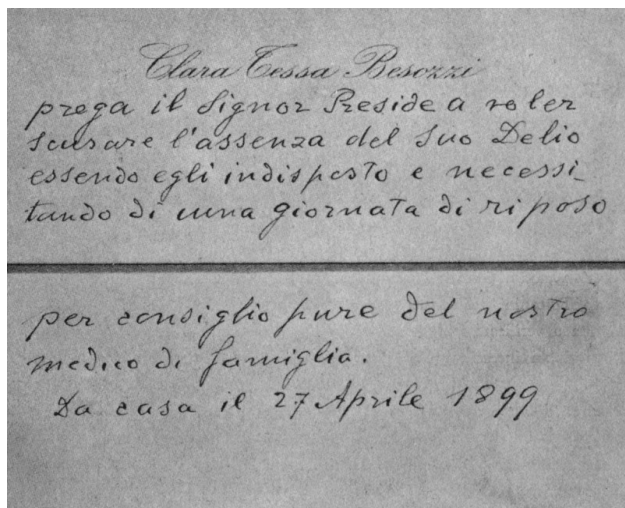 Clara Tessa Besozzi
prega il Signor Preside a voler
scusare l'assenza del suo Delio
essendo egli indisposto e necessi_
tando di una giornata di riposo
per consiglio pure del nostro
medico di famiglia.
Da casa il 27 Aprile 1899